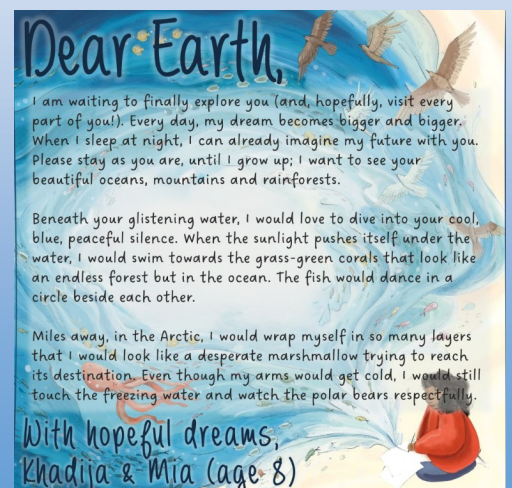 Dear Earth,
I am waiting to finally explore you (and, hopefully, visit every
part of you!). Every day, my dream becomes bigger and bigger.
When I sleep at night, I can already imagine my future with you.
Please stay as you are, until I grow up; I want to see your
beautiful oceans, mountains and rainforests.
Beneath your glistening water, I would love to dive into your cool,
blue, peaceful silence. When the sunlight pushes itself under the
water, I would swim towards the grass-green corals that look like
an endless forest but in the ocean. The fish would dance in a
circle beside each other.
Miles away, in the Arctic, I would wrap myself in so many layers
that I would look like a desperate marshmallow trying to reach
its destination. Even though my arms would get cold, I would still
touch the freezing water and watch the polar bears respectfully.
With hopeful dreams,
Khadija & Mia (age 8)